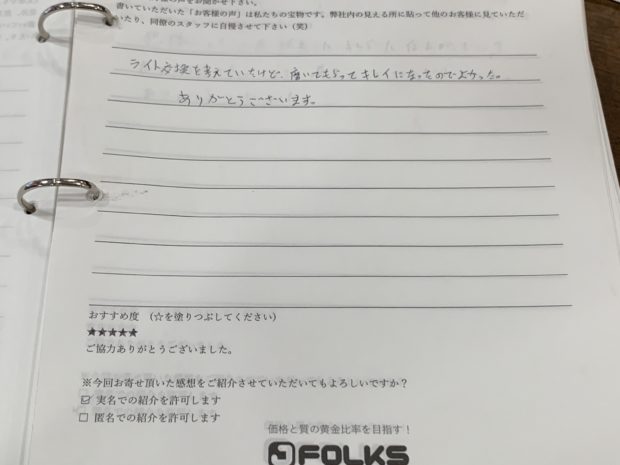 書いていただいた「お客様の声」は私たちの宝物です。弊社内の見える所に貼って他のお客様に見ていただ
いたり、同僚のスタッフに自慢させて下さい（笑）
ライト交換を考えていたけど、磨いてもらってキレイになったのでよかった。
ありがとうございます。
おすすめ度 （☆を塗りつぶしてください）
★★★★★
ご協力ありがとうございました。
※今回お寄せ頂いた感想をご紹介させていただいてもよろしいですか？
☑ 実名での紹介を許可します
□ 匿名での紹介を許可します
価格と質の黄金比率を目指す！
FOLKS